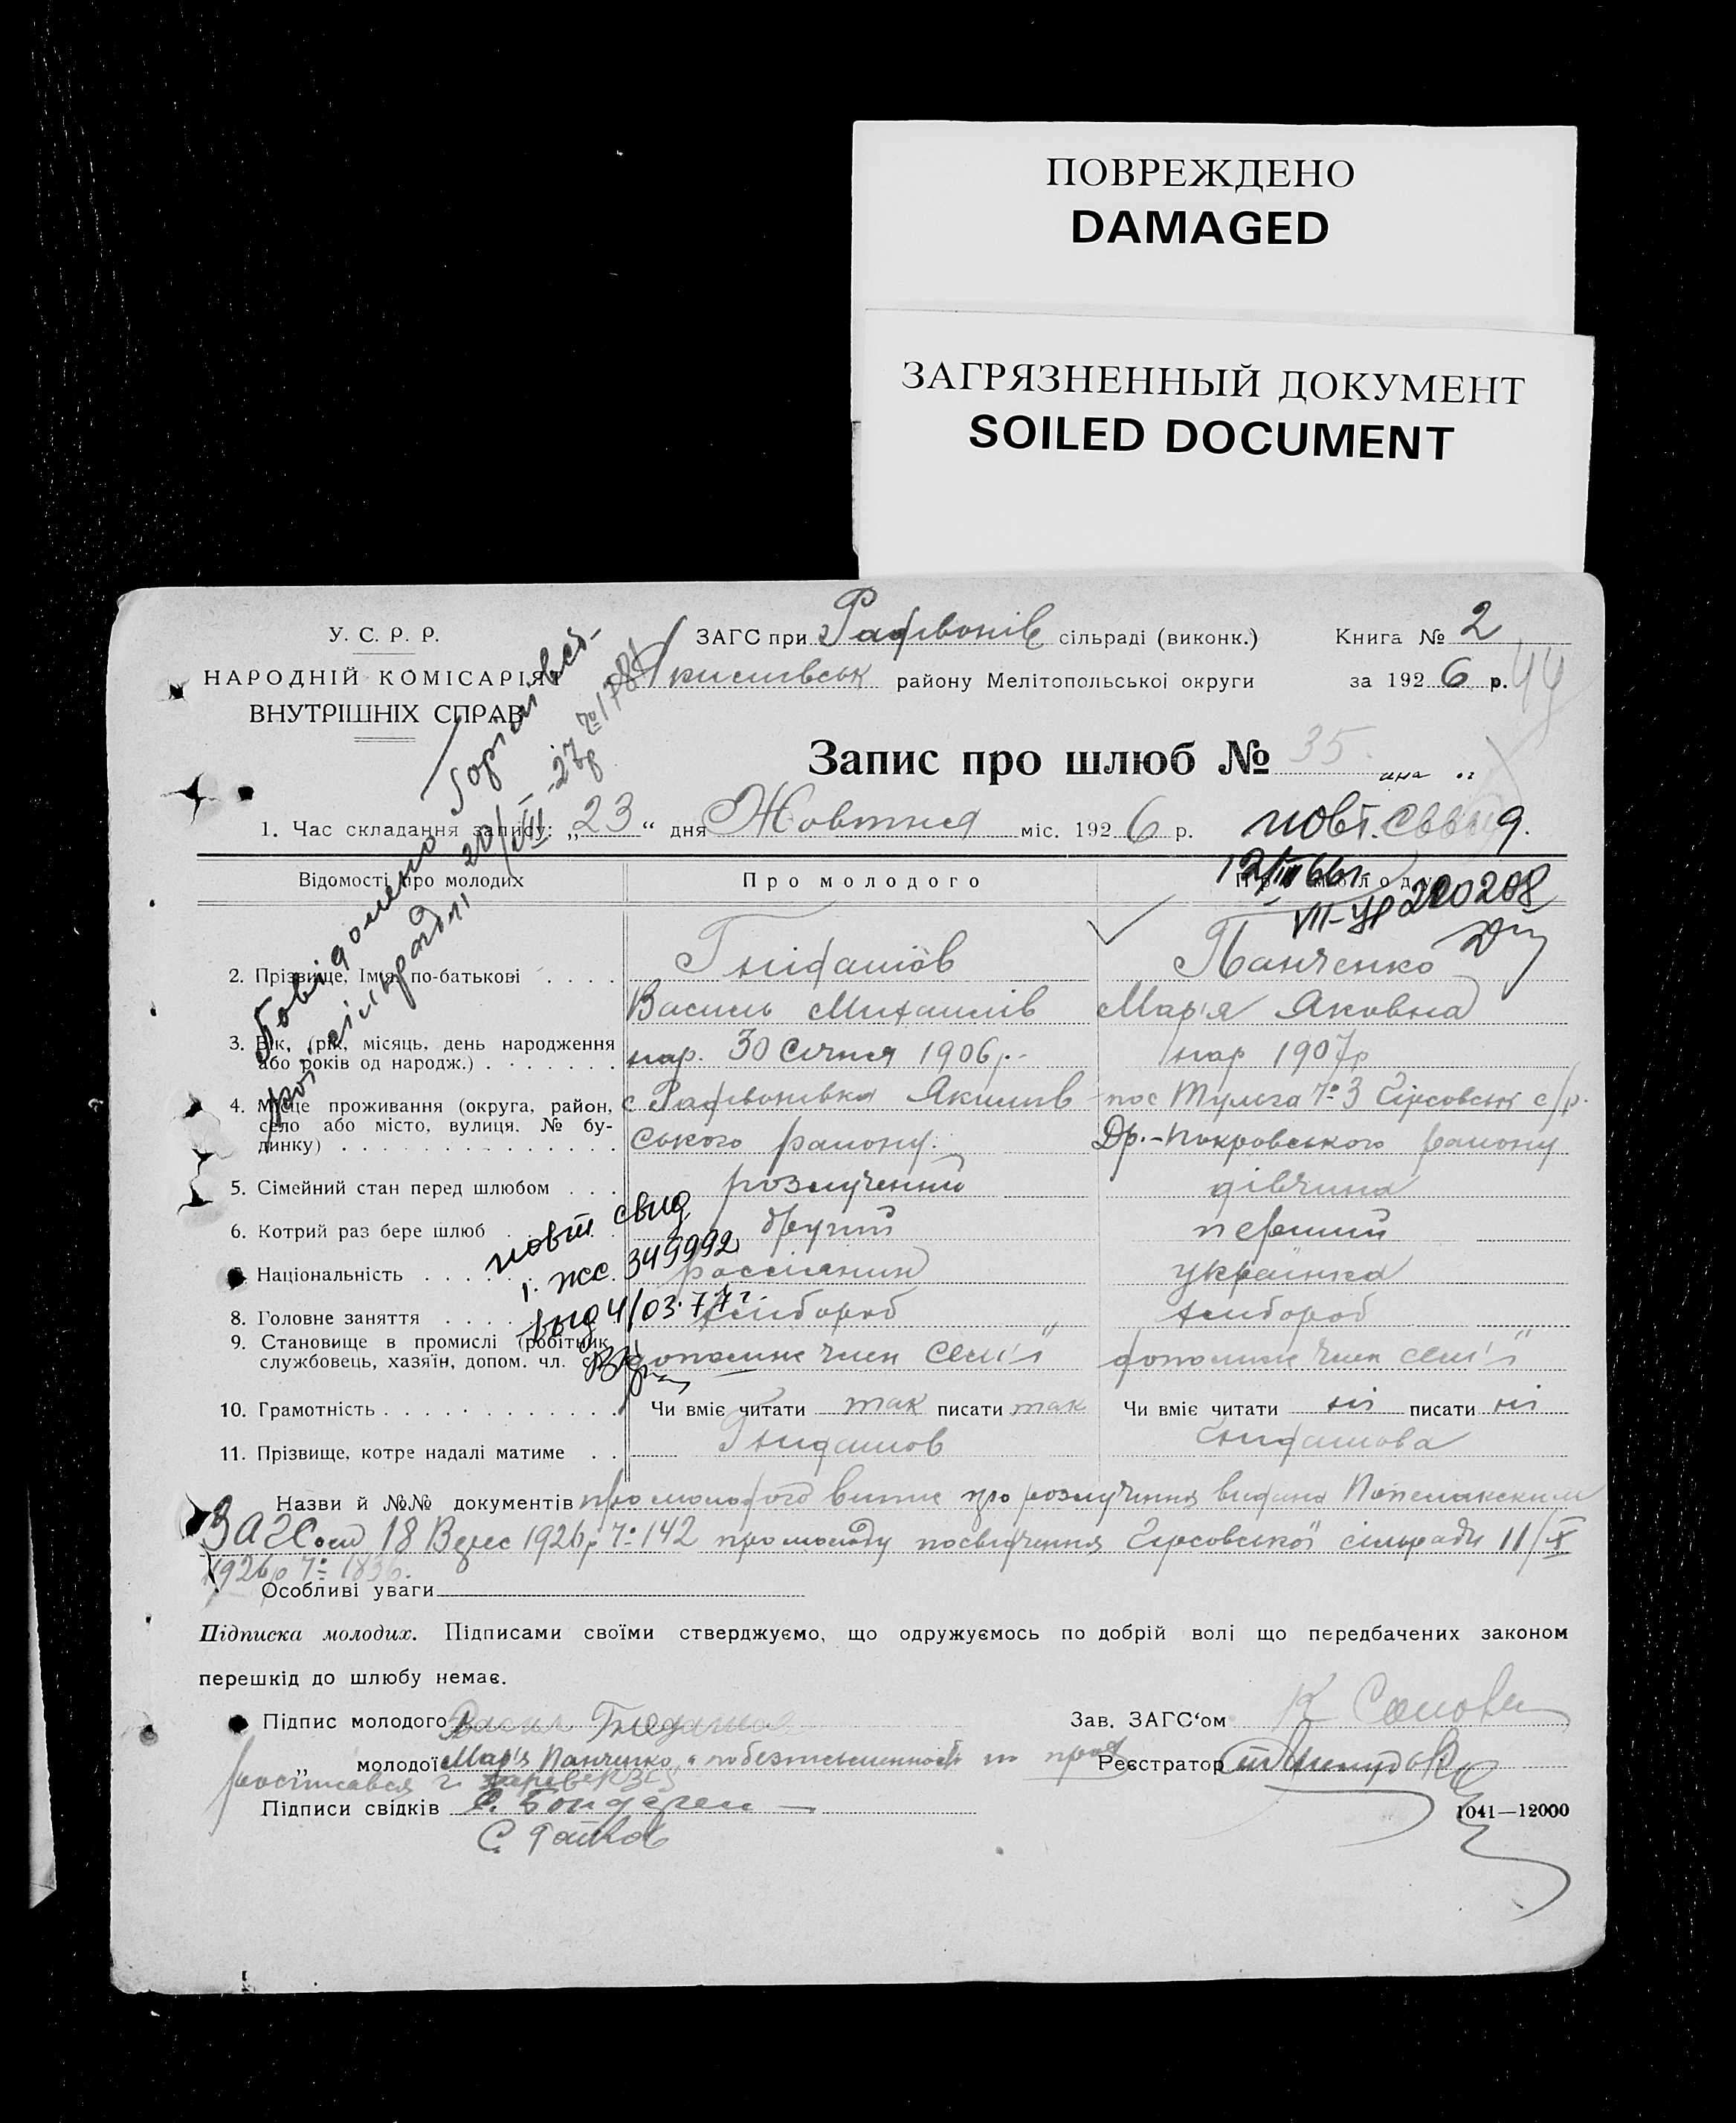 ПОВРЕЖДЕНО
DAMAGED
ЗАГРЯЗНЕННЫЙ ДОКУМЕНТ
SOILED DOCUMENT
У. С. Р. Р.
НАРОДНІЙ КОМІСАРІЯТ
ВНУТРІШНІХ СПРАВ
ЗАГС при Радівонів сільраді (виконк.)
Книга № 2
Якимівськ району Мелітопольської округи
за 1926 р. 44
Запис про шлюб № 35
1. Час складання запису: „23“ дня Жовтня міс. 1926 р.
повт. свид.
12/III 66г.
VII-УР 220208
Повідомлено
сільраді 20/VIII-27р № 1781
Відомості про молодих
Про молодого
2. Прізвище, Ім'я, по-батькові
Гнідашов
Панченко
Василь Михайлів
Мар'я Яковна
3. Вік, (рік, місяць, день народження або років од народж.)
нар. 30 Січня 1906р.
нар 1907р
4. Місце проживання (округа, район, село або місто, вулиця. № будинку)
с Радівонівка Якимівського району.
пос Тульга № 3 Гірсовськ с/р. Др.-Покровського району
5. Сімейний стан перед шлюбом
розлучений
дівчина
6. Котрий раз бере шлюб
другий
перший
7. Національність
россіянин
українка
8. Головне заняття
хлібороб
хлібороб
повт свид
1. жс. 349992
выд 4/03.77г.
9. Становище в промислі (робітник, службовець, хазяїн, допом. чл. сім'ї)
допоміж член сем'ї
допоміж член сем'ї
10. Грамотність
Чи вміє читати так писати так
Чи вміє читати ні писати ні
11. Прізвище, котре надалі матиме
Гнидашов
Гнидашова
Назви й №№ документів про молодого витяг про розлучення видана
ЗАГСом 18 Верес 1926р № 142 про молоду посвідчення Гірсовської сільради 11/X
1926р № 1836.
Особливі уваги
Підписка молодих. Підписами своїми стверджуємо, що одружуємось по добрій волі що передбачених законом
перешкід до шлюбу немає.
Підпис молодого
Зав. ЗАГС'ом
„ молодої Мар'я Панченко,
Реєстратор
Підписи свідків
1041—12000